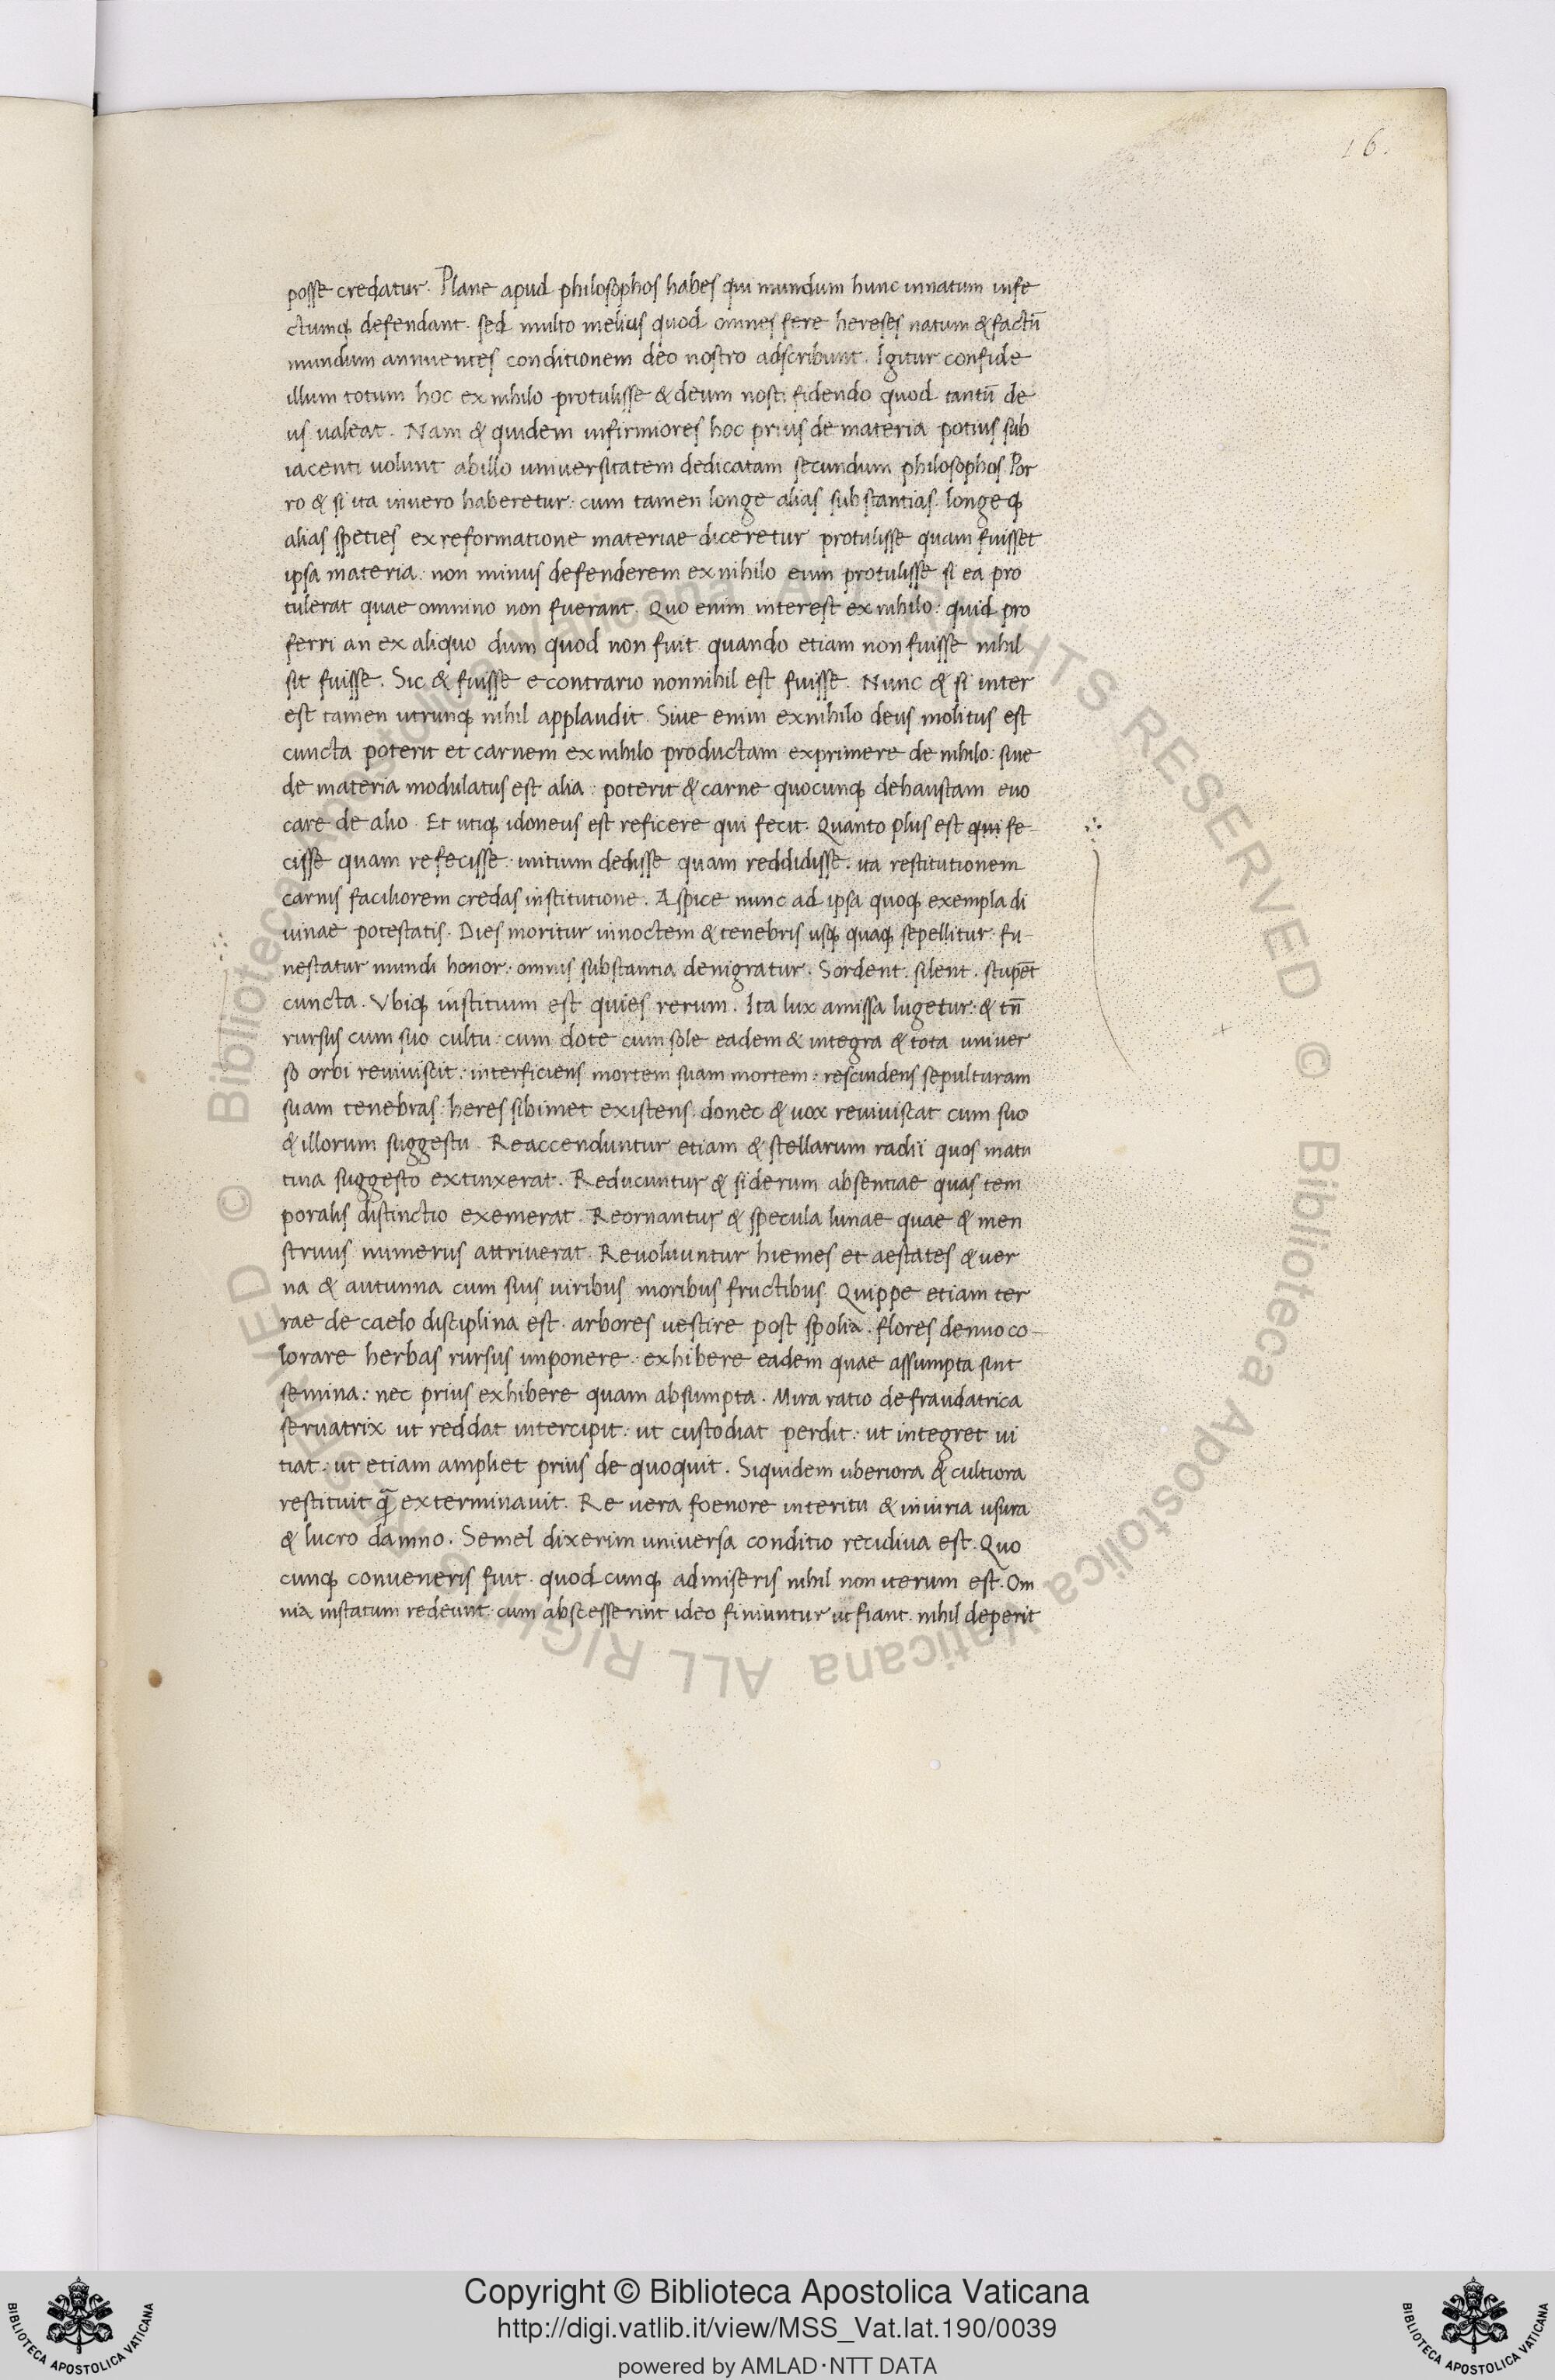 16.
posse credatur. Plane apud philosophos habes qui mundum hunc innatum infe
ctumq; defendant. sed multo melius quod omnes fere hereses natum & factū
mundum annuentes conditionem deo nostro adscribunt. Igitur confide
illum totum hoc ex nihilo protulisse & deum nosti fidendo quod tantū de
us ualeat. Nam & quidem infirmiores hoc prius de materia potius sub
iacenti uolunt abillo universitatem dedicatam secundum philosophos. Por
ro & si ita invero haberetur: cum tamen longe alias substantias. longeq;
alias speties ex reformatione materiae diceretur protulisse quam fuisset
ipsa materia: non minus defenderem ex nihilo eum protulisse si ea pro
tulerat quae omnino non fuerant. Quo enim interest ex nihilo: quid pro
ferri an ex aliquo dum quod non fuit quando etiam non fuisse nihil
sit fuisse. Sic & fuisse e contrario nonnihil est fuisse. Nunc & si inter
est tamen utrunq; nihil applaudit. Siue enim exnihilo deus molitus est
cuncta poterit et carnem ex nihilo productam exprimere de nihilo: siue
de materia modulatus est alia: poterit & carne quocunq; dehaustam euo
care de alio. Et utiq; idoneus est reficere qui fecit. Quanto plus est qui fe-
cisse quam refecisse. initium dedisse quam reddidisse. ita restitutionem
carnis faciliorem credas institutione. Aspice nunc ad ipsa quoq; exempla di
uinae potestatis. Dies moritur innoctem & tenebris usq; quaq; sepellitur. fu-
nestatur mundi honor. omnis substantia denigratur. Sordent. silent. stupēt
cuncta. Vbiq; institium est quies rerum. Ita lux amissa lugetur. & tn̄
rursus cum suo cultu: cum dote cum sole eadem & integra & tota univer
so orbi reuiuiscit: interficiens mortem suam mortem: rescindens sepulturam
suam tenebras: heres sibimet existens. donec & uox reuiuiscat cum suo
& illorum suggestu. Reaccenduntur etiam & stellarum radii quos matu
tina suggesto extinxerat. Reducuntur & siderum absentiae quas tem
poralis distinctio exemerat. Reornantur & specula lunae quae & men
struus numerus attriverat. Reuoluuntur hiemes et aestates & uer
na & autunna cum suis uiribus moribus fructibus. Quippe etiam ter
rae de caelo disciplina est. arbores uestire post spolia. flores denuo co-
lorare herbas rursus imponere. exhibere eadem quae assumpta sint
semina: nec prius exhibere quam absumpta. Mira ratio defraudatrica
servatrix ut reddat intercipit: ut custodiat perdit: ut integret ui
tiat: ut etiam ampliet prius de quoquit. Siquidem uberiora & cultiora
restituit q̄ exterminauit. Re uera foenore interitu & iniuria usura
& lucro damno. Semel dixerim universa conditio recidiua est. Quo
cunq; conveneris fuit. quodcunq; admiseris nihil non iterum est. Om
nia instatum redeunt cum abscesserint ideo finiuntur ut fiant. nihil deperit
© Biblioteca Apostolica Vaticana ALL RIGHTS RESERVED © Biblioteca Apostolica Vaticana ALL RIGHTS RESERVED
Copyright © Biblioteca Apostolica Vaticana
http://digi.vatlib.it/view/MSS_Vat.lat.190/0039
powered by AMLAD·NTT DATA
BIBLIOTECA APOSTOLICA VATICANA
BIBLIOTECA APOSTOLICA VATICANA